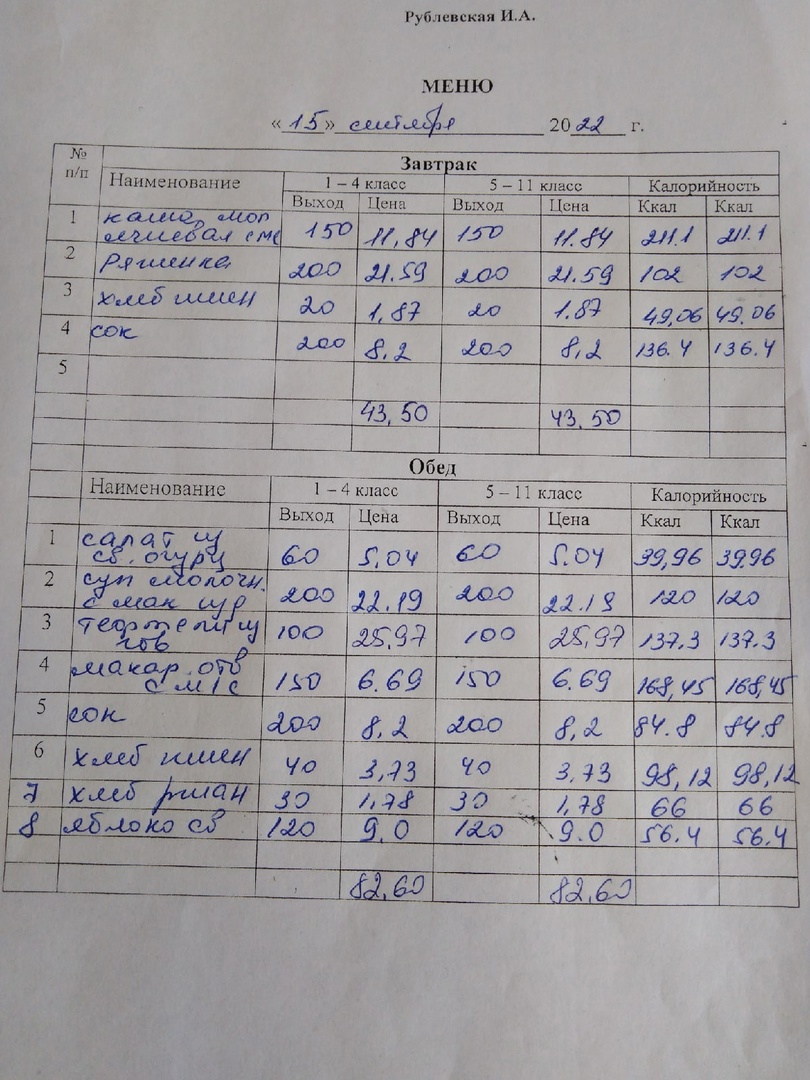 Рублевская И.А.
МЕНЮ
« 15 » сентября 2022 г.
№ п/п Завтрак
Наименование 1 – 4 класс 5 – 11 класс Калорийность
Выход Цена Выход Цена Ккал Ккал
1 каша мол
ячневая с мс 150 11,84 150 11.84 211.1 211.1
2 Ряженка 200 21.59 200 21.59 102 102
3 хлеб пшен 20 1,87 20 1.87 49,06 49.06
4 сок 200 8,2 200 8,2 136.4 136.4
5
43,50 43,50
Обед
Наименование 1 – 4 класс 5 – 11 класс Калорийность
Выход Цена Выход Цена Ккал Ккал
1 салат из
св. огурц 60 5,04 60 5.04 39,96 39.96
2 суп молочн.
с мак изд 200 22.19 200 22.19 120 120
3 тефтели из
гов 100 25,97 100 25,97 137.3 137.3
4 макар. отв
с м/с 150 6.69 150 6.69 168,45 168,45
5 сок 200 8,2 200 8,2 84.8 84.8
6 хлеб пшен 40 3,73 40 3,73 98,12 98,12
7 хлеб ржан 30 1,78 30 1,78 66 66
8 яблоко св 120 9.0 120 9.0 56.4 56.4
82,60 82,60